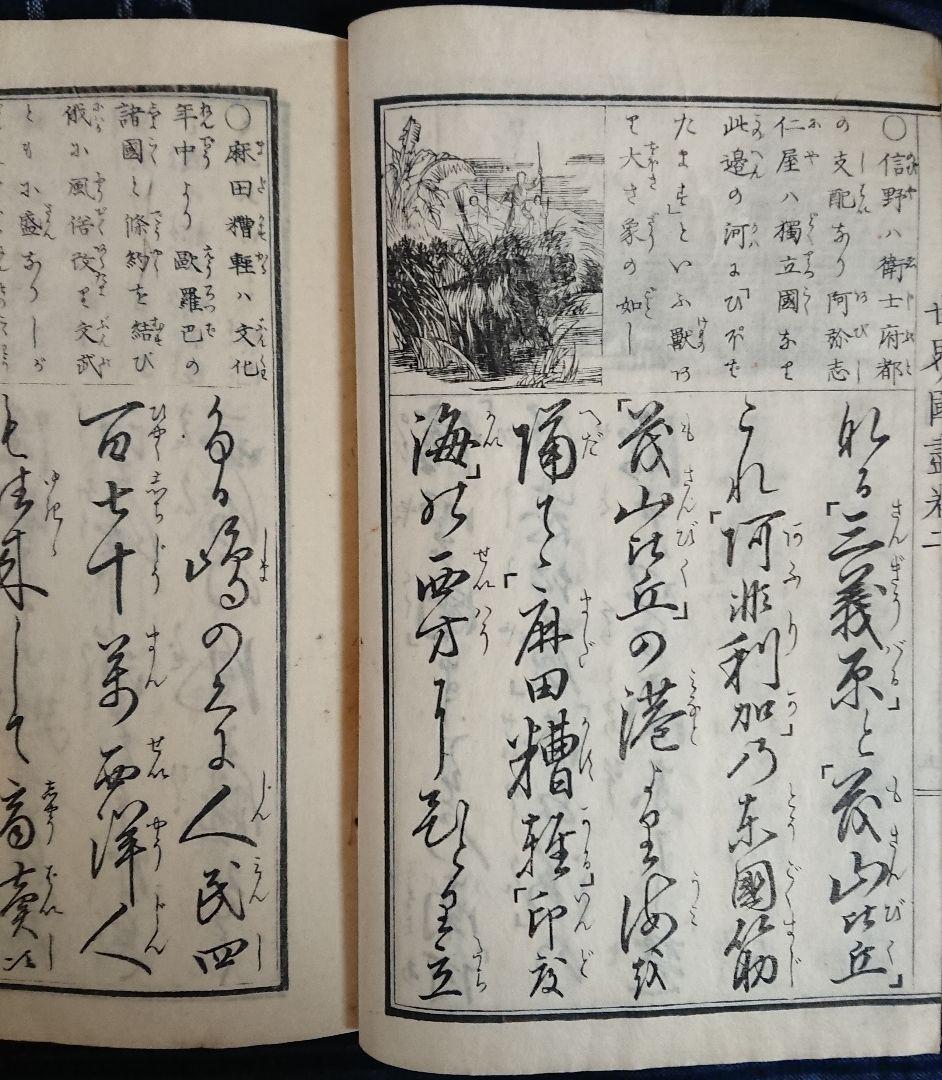 世界國盡 卷二
○信野ハ衛士府都
の支配なり阿弥志
仁屋ハ獨立國なり
此邊の河に「ひぽぽた
たます」といふ獣あ
り大さ象の如し
れる「三義原」と「茂山比丘」
これ「阿非利加」乃東國筋
「茂山比丘」の港より海越
隔てゝ「麻田糟輕」「印度
海」の西方に孤り立
る嶋の
人民四
百七十萬西洋人
も往來して商賣
○麻田糟輕ハ文化
年中より歐羅巴の
諸國と條約を結び
俄に風俗改り文武
ともに盛なりしが